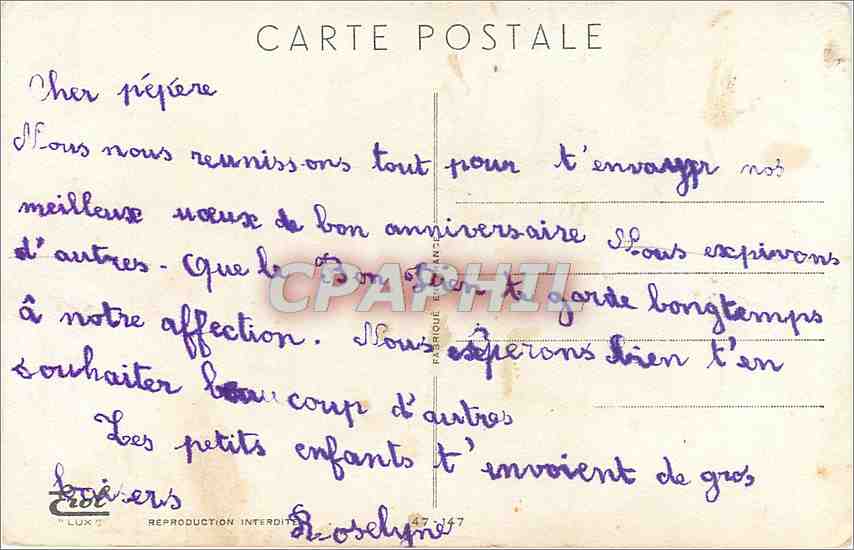 CARTE POSTALE
Cher pépère
Nous nous reunissons tout pour t'envayer nos
meilleux vœux de bon anniversaire Nous expivons
d'autres - Que le Bon Dien te garde bongtemps
CPAPHIL
à notre affection. Nous espêperons bien t'en
souhaiter beaucoup d'autres
Les petits enfants t'envoient de gros
baisers
"LUX" REPRODUCTION INTERDITE 47-147
Roselyne
FABRIQUÉ EN FRANCE